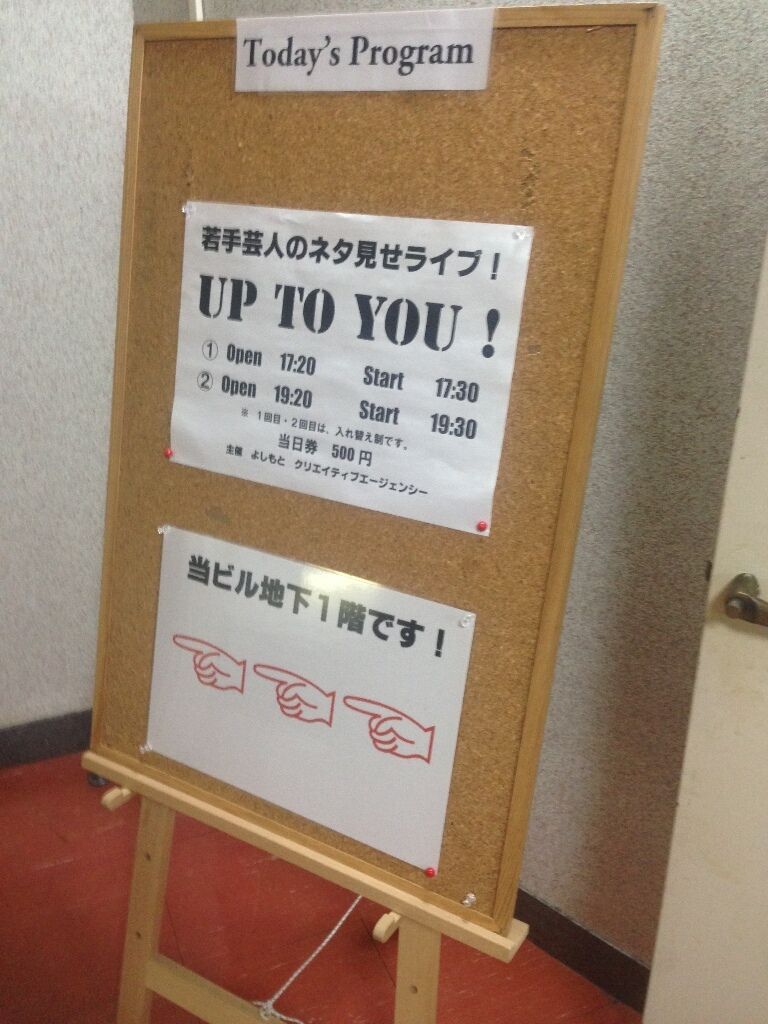 Today's Program
若手芸人のネタ見せライブ！
UP TO YOU !
① Open 17:20 Start 17:30
② Open 19:20 Start 19:30
※ 1回目・2回目は、入れ替え制です。
当日券 500円
主催 よしもと クリエイティブエージェンシー
当ビル地下1階です！